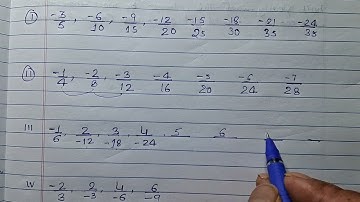 I -3/5, -6/10, -9/15, -12/20 -15/25 -18/30 -21/35 -24/35
II -1/4, -2/8, -3/12 -4/16 -5/20 -6/24 -7/28
III -1/6 2/-12 3/-18 4/-24 5 6
IV -2/3 2/-3 4/-6 6/-9